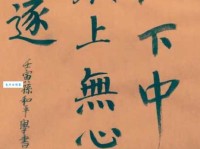 下中
上無心
逐
壬寅
和平學書